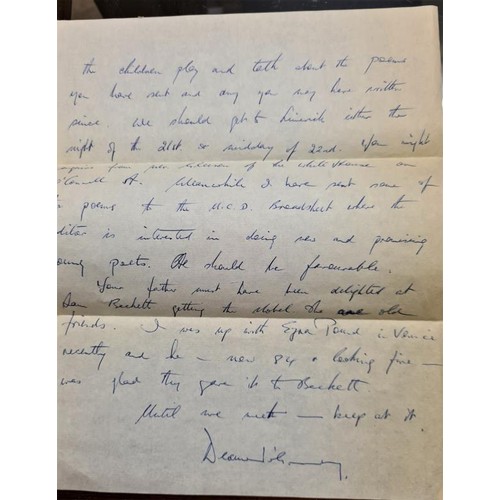 the children play and talk about the poems
you have sent and any you may have written
since. We should get to Limerick either the
night of the 21st or midday of 22nd. You might
from the White House on
O'Connell St. Meanwhile I have sent some of
poems to the U.C.D. Broadsheet where the
editor is interested in doing new and promising
young poets. He should be favourable.
Your father must have been delighted at
Sam Beckett getting the Nobel old
friends. I was up with Ezra Pound in Venice
recently and he — now 84 & looking fine —
was glad they gave it to Beckett.
Until we meet — keep at it.